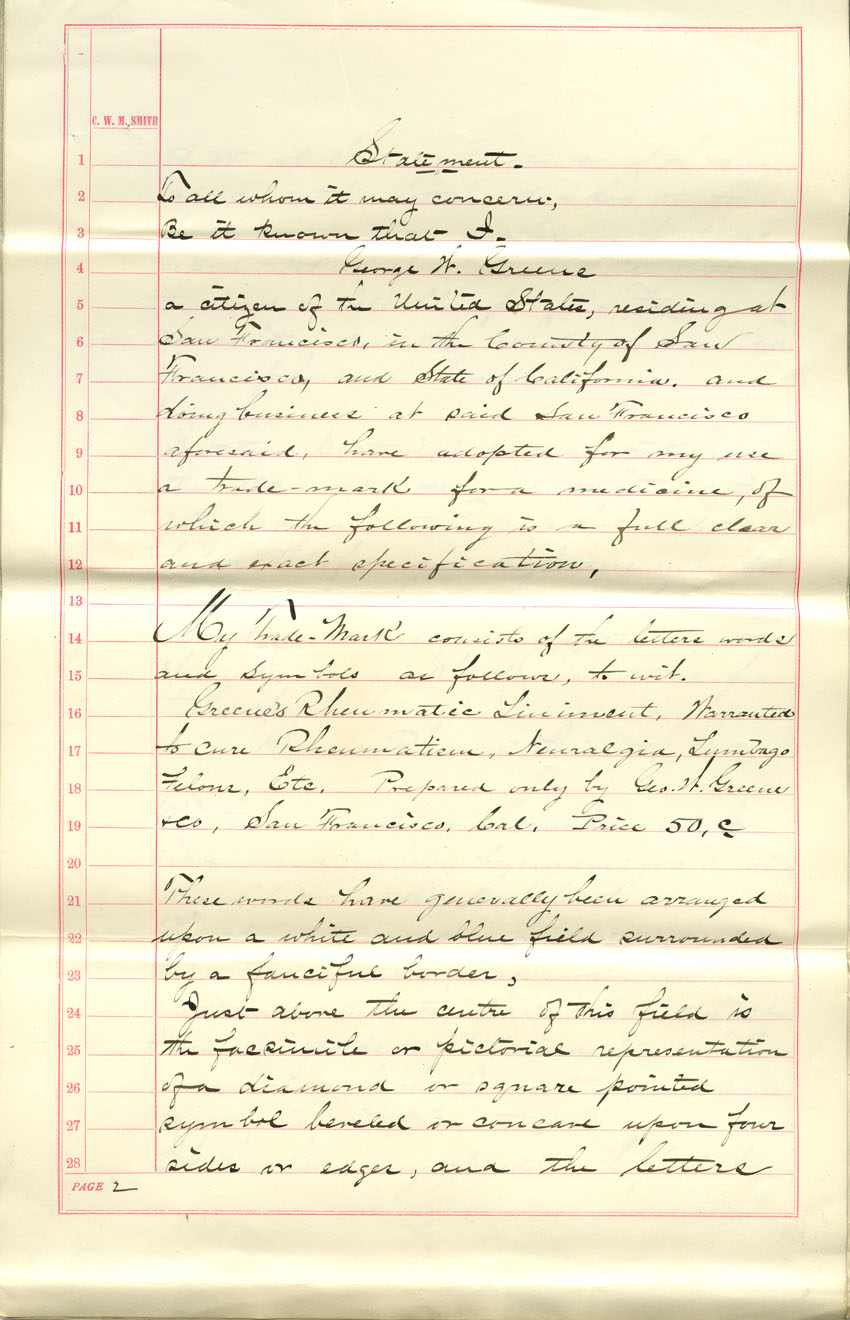 C. W. M. SMITH
1 Statement.
2 To all whom it may concern,
3 Be it known that I.
4 George W. Greene
5 a citizen of the United States, residing at
6 San Francisco, in the County of San
7 Francisco, and State of California. and
8 doing business at said San Francisco
9 aforesaid, have adopted for my use
10 a trade-mark for a medicine, of
11 which the following is a full clear
12 and exact specification,
13
14 My Trade-Mark consists of the letters words
15 and symbols as follows, to wit.
16 Greene's Rheumatic Liniment, Warranted
17 to cure Rheumatism, Neuralgia, Lumbago
18 Felons, Etc. Prepared only by Geo. W. Greene
19 &co, San Francisco, Cal. Price 50, c
20
21 These words have generally been arranged
22 upon a white and blue field surrounded
23 by a fanciful border,
24 Just above the centre of this field is
25 the facsimile or pictorial representation
26 of a diamond or square pointed
27 symbol beveled or concave upon four
28 sides or edges, and the letters
PAGE 2